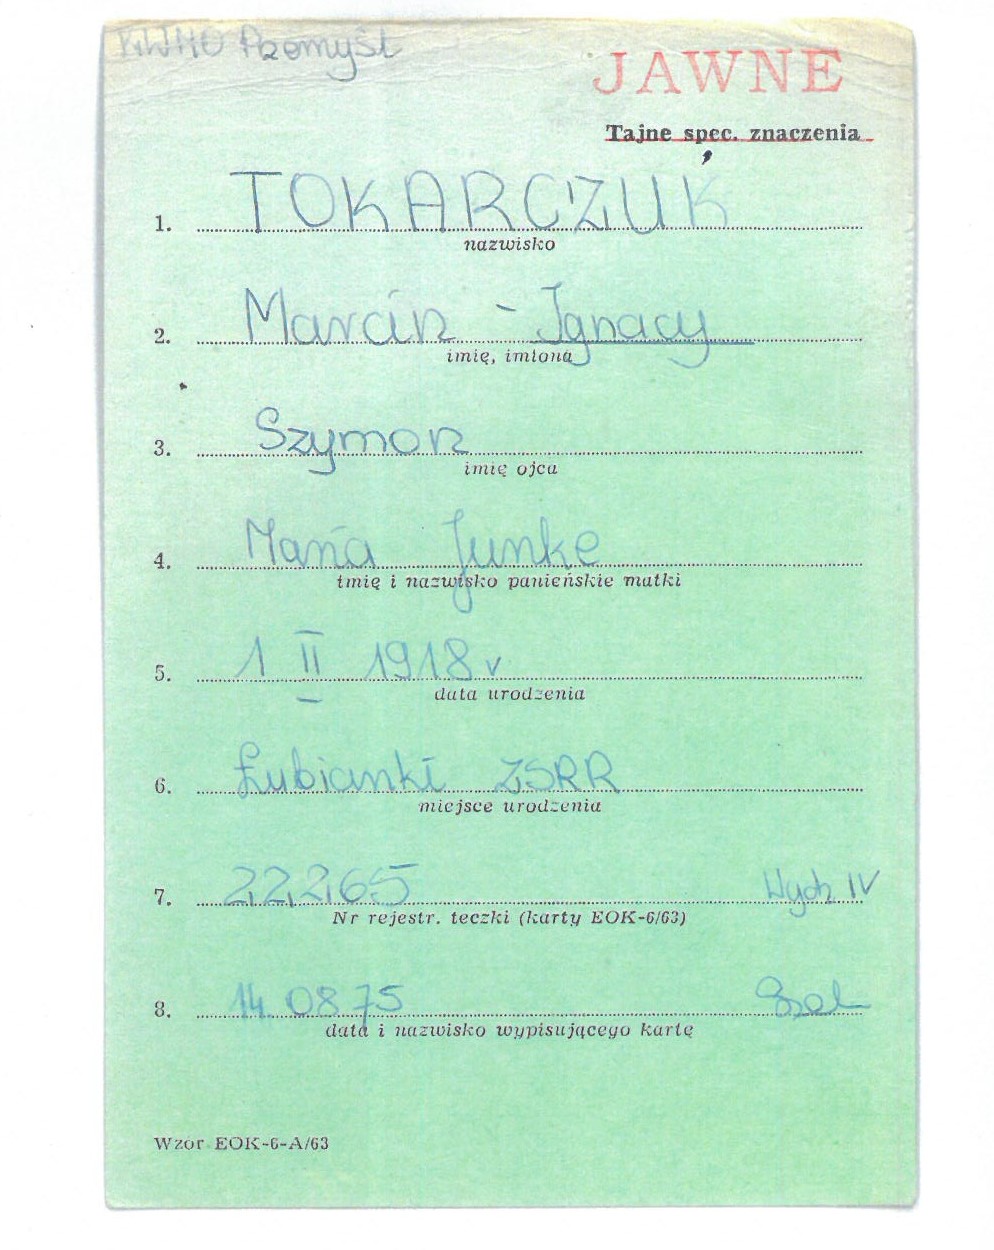 KWMO Przemyśl
JAWNE
Tajne spec. znaczenia
1. TOKARCZUK
nazwisko
2. Marcin - Ignacy
imię, imiona
3. Szymon
imię ojca
4. Maria Junke
imię i nazwisko panieńskie matki
5. 1 II 1918 r
data urodzenia
6. Łubianki ZSRR
miejsce urodzenia
7. 22265 Wydz IV
Nr rejestr. teczki (karty EOK-6/63)
8. 14.08 75
data i nazwisko wypisującego kartę
Wzór EOK-6-A/63